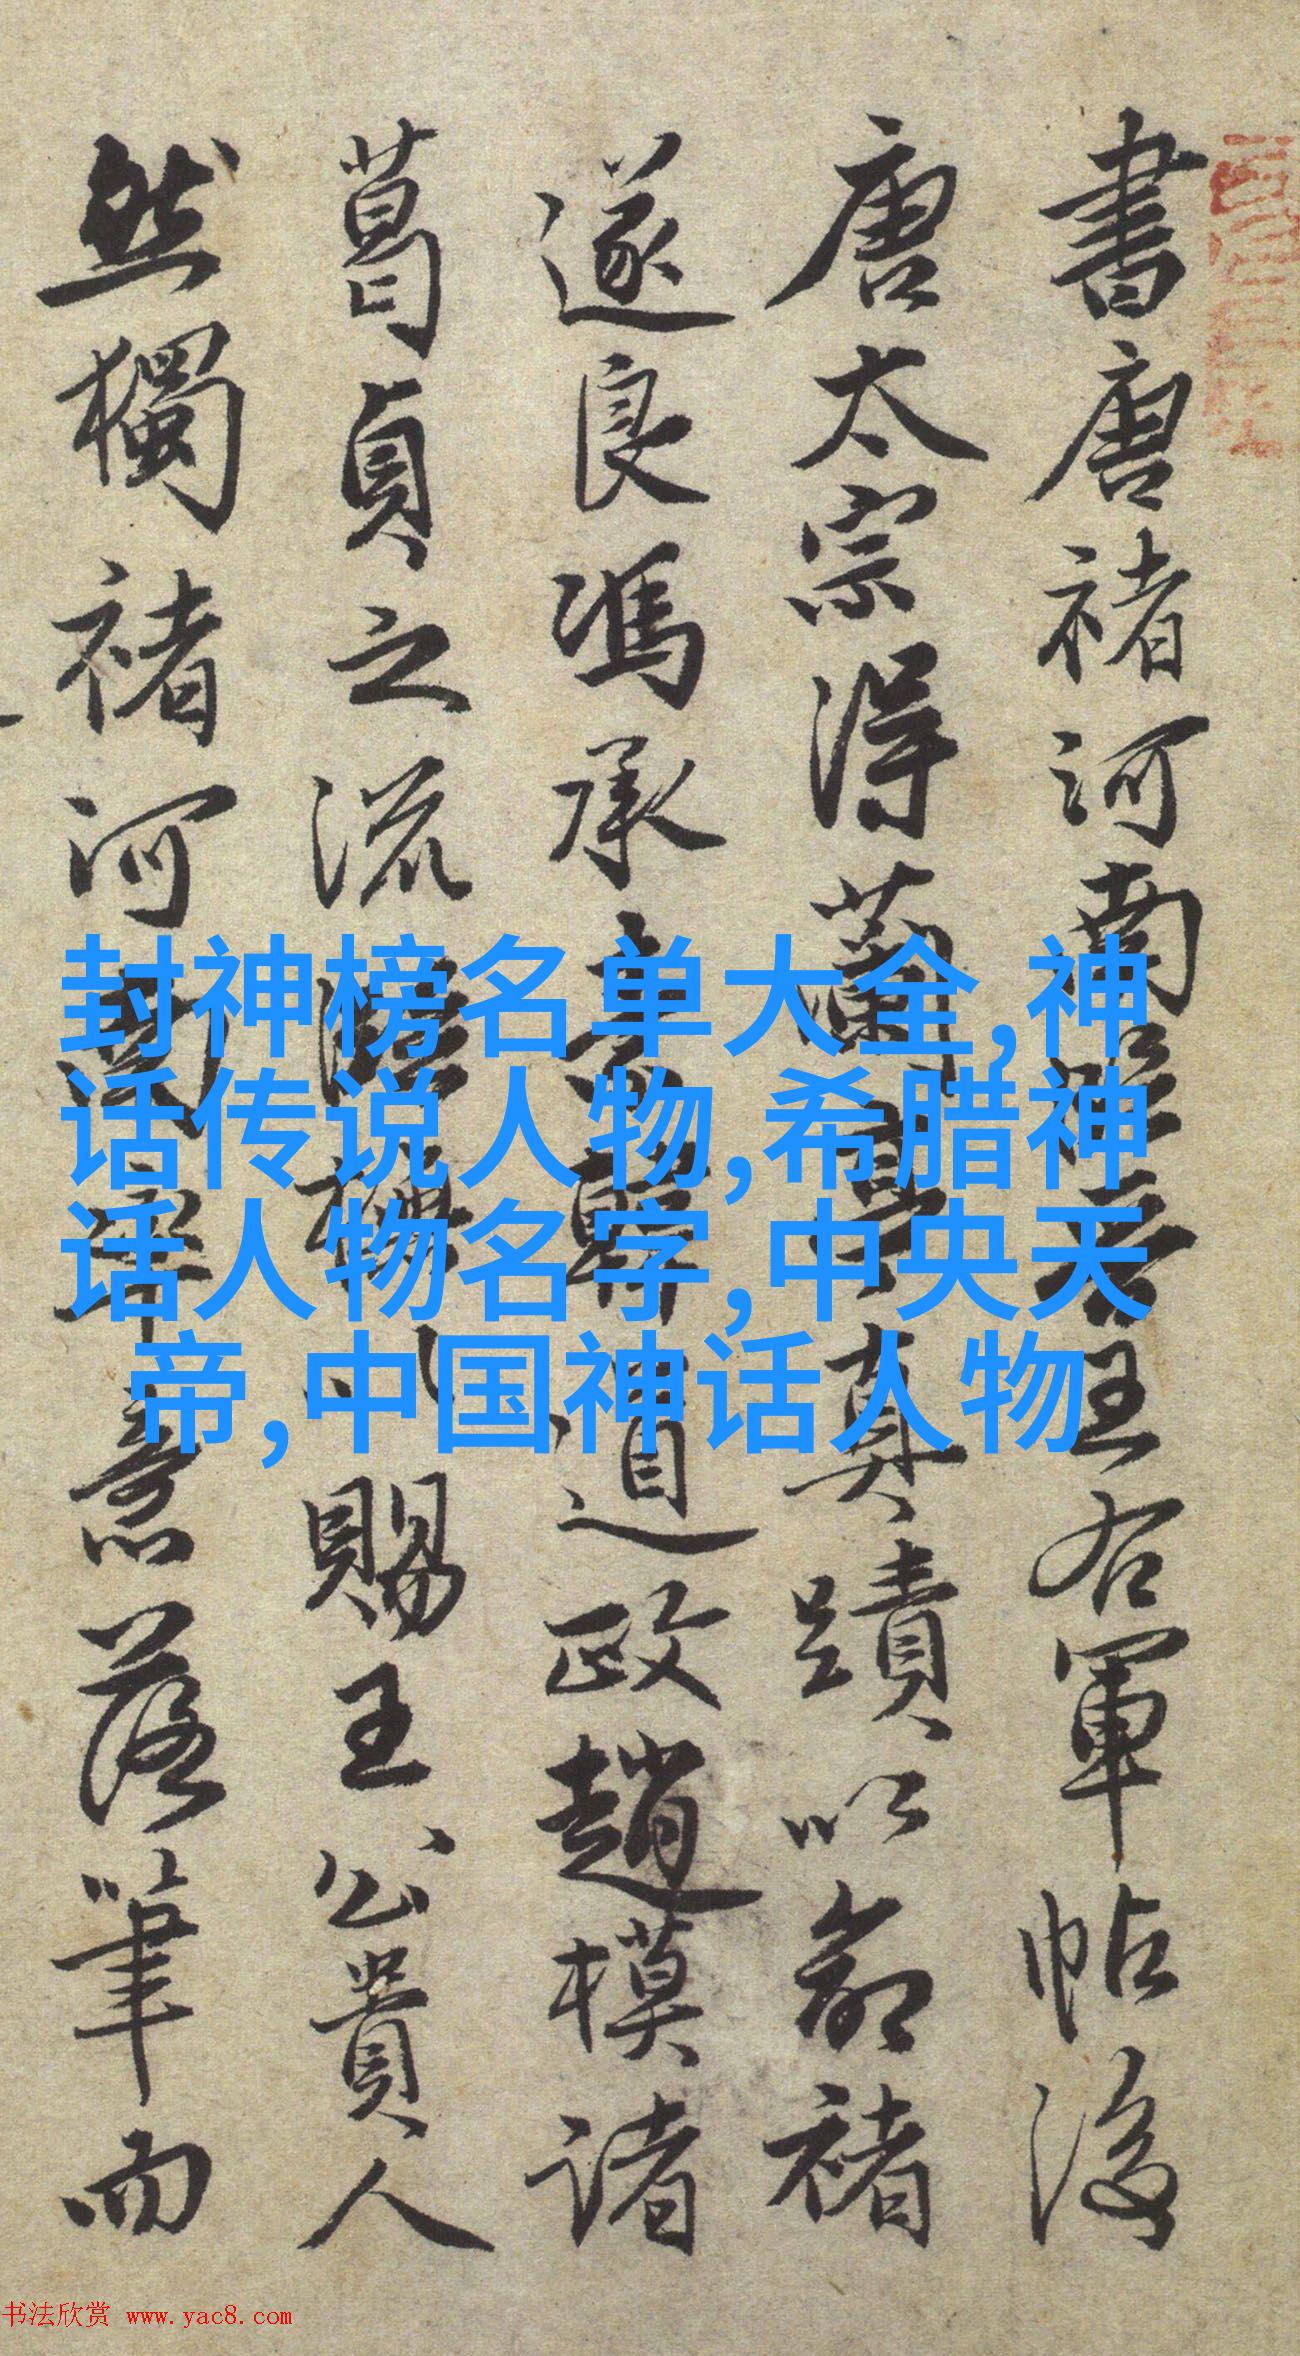 書唐褚河南臨晉王右軍帖後
唐太宗得蘭亭真蹟以命褚
遂良馮承素韓道政趙模諸
葛貞之流臨以賜王公貴人
然獨褚河南率意落筆而
封神榜名单大全,神
话传说人物,希腊神
话人物名字,中央天
帝,中国神话人物
书法欣赏 www.yac8.com